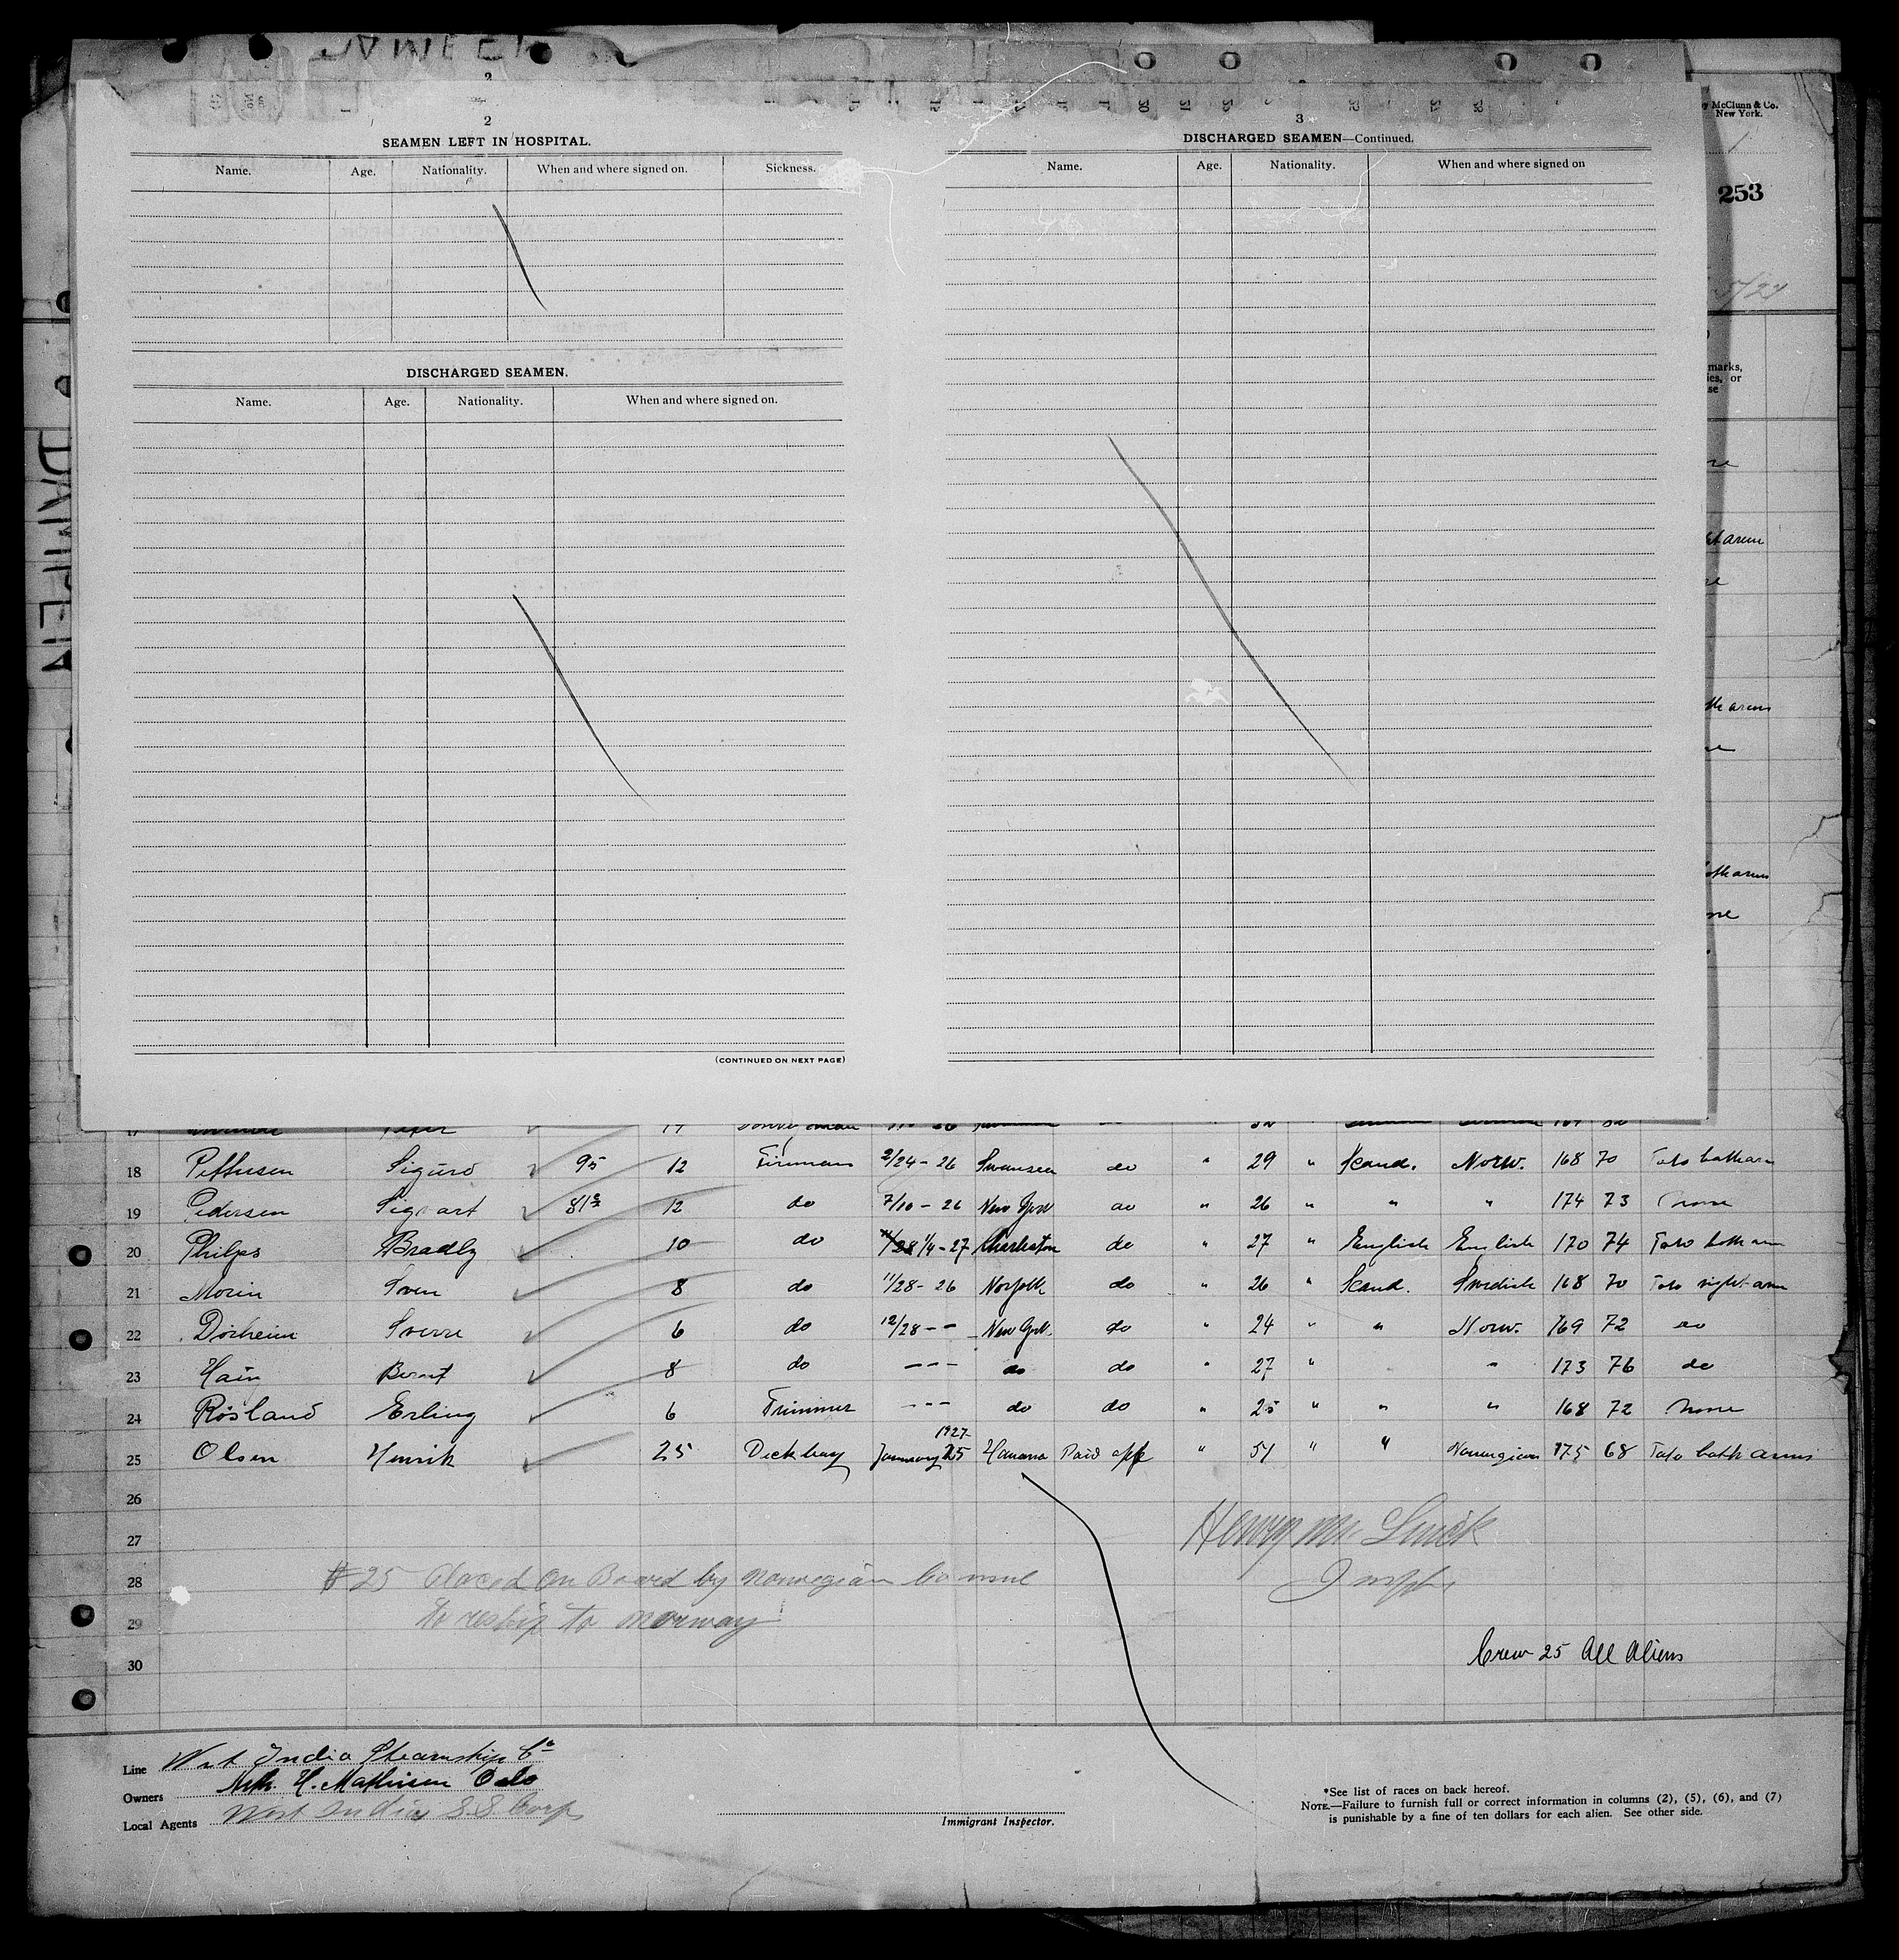 2
SEAMEN LEFT IN HOSPITAL.
Name. Age. Nationality. When and where signed on. Sickness.
DISCHARGED SEAMEN.
Name. Age. Nationality. When and where signed on.
(CONTINUED ON NEXT PAGE)
3
DISCHARGED SEAMEN—Continued.
Name. Age. Nationality. When and where signed on
McClunn & Co.
New York.
1
253
marks,
or
DAMPEN
17
18 Sigurd 95 12 Fireman 2/24-26 Swansea do " 29 " Scand. Norw. 168 70 Tato both arm
19 Pedersen 12 do 7/10-26 New York do " 26 " " " 174 73 none
20 Philps Bradly 10 do 1/4-27 Charleston do " 27 " English English 170 74 Tato both arm
21 Morin Sven 8 do 11/28-26 Norfolk do " 26 " Scand. Swedish 168 70 Tato right arm
22 Sverre 6 do 12/28-- New York do " 24 " " Norw. 169 72 do
23 Hain Berent 8 do --- do do " 27 " " 173 76 do
24 Rösland Erling 6 Trimmer --- do do " 25 " " " 168 72 none
25 Olsen Henrik 25 Deckboy January 25 1927 Havana Paid off " 51 " " Norwegian 175 68 Tato both arms
26
27 Henry M.
28 #25 Placed on Board by Norwegian Consul
29 to reship to Norway
30 Crew 25 All Aliens
Line West India Steamship Co
Owners H. Mathisen Oslo
Local Agents West India S.S. Corp
Immigrant Inspector.
*See list of races on back hereof.
NOTE.—Failure to furnish full or correct information in columns (2), (5), (6), and (7)
is punishable by a fine of ten dollars for each alien. See other side.